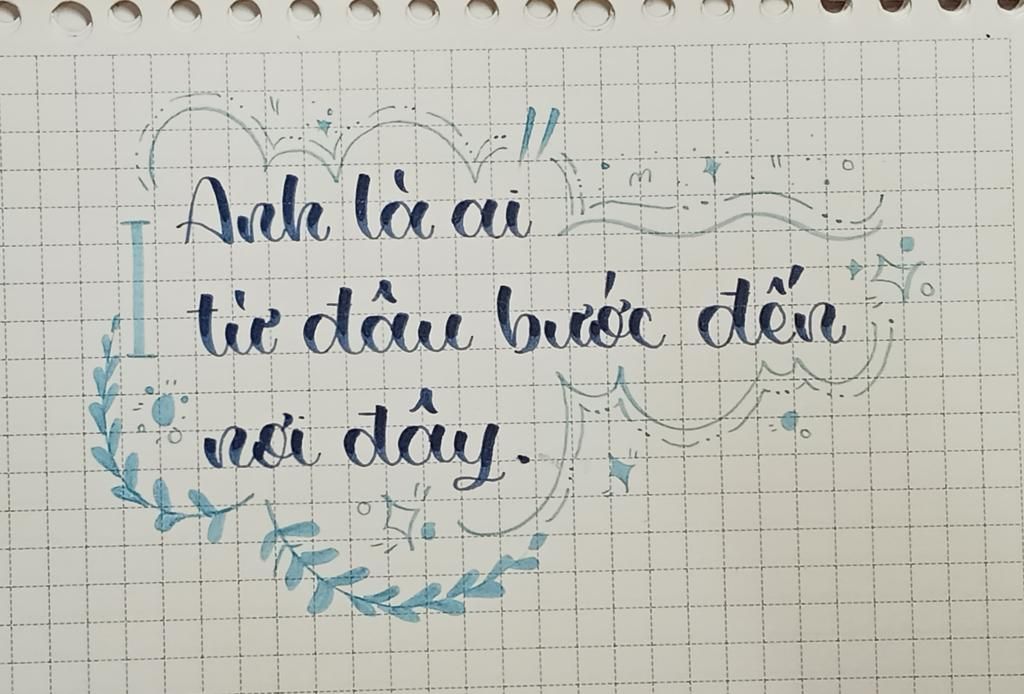 Anh là ai
từ đâu bước đến
nơi đây.